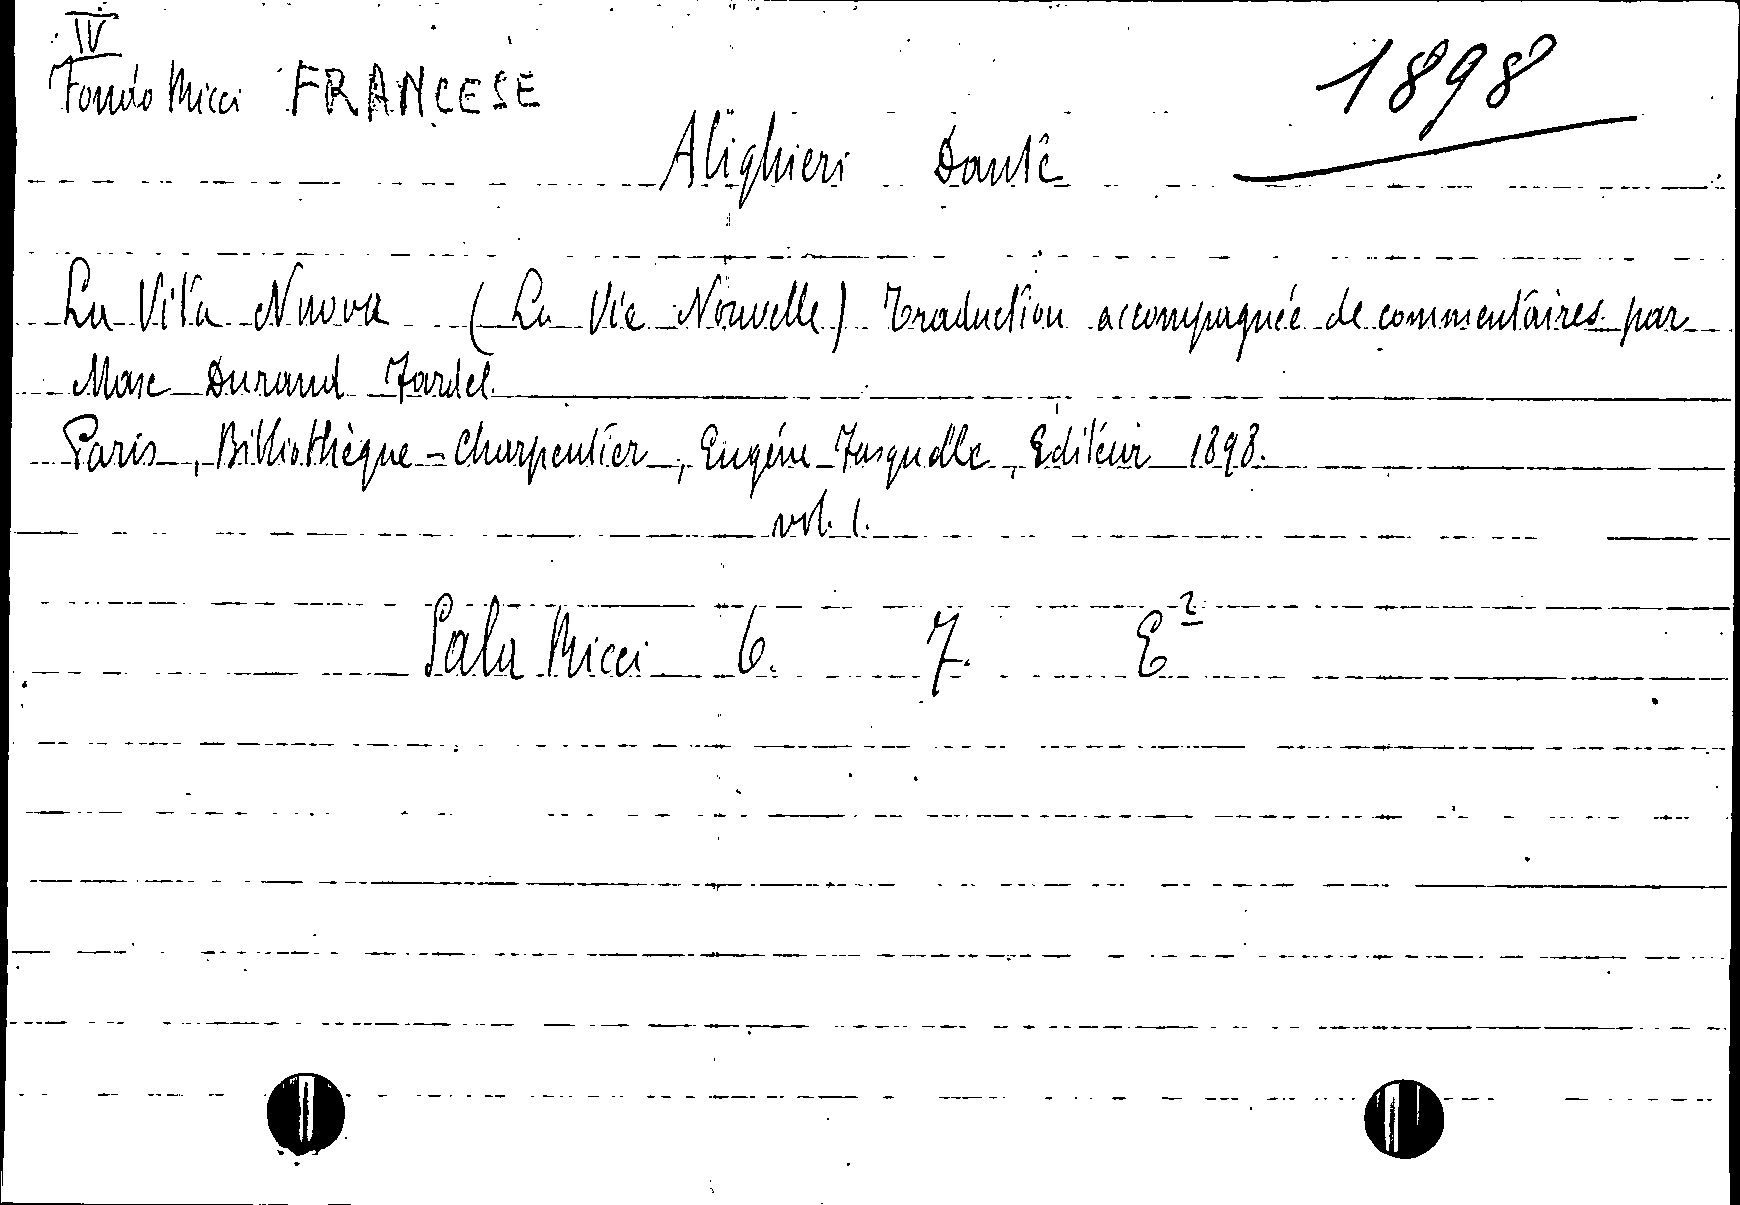 IV
Fondo Ricci FRANCESE
1898
Alighieri Dante
La Vita Nuova (La Vie Nouvelle) Traduction accompagnée de commentaires par
Max Durand Fardel
Paris, Bibliothèque-Charpentier, Eugéne Fasquelle, Editeur 1898.
vol. 1.
Sala Ricci 6. 7. E²